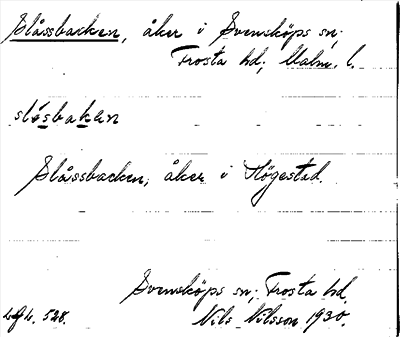 Slåssbacken, åker i Svensköps sn;
Frosta hd, Malm. l.
slósbakan
Slåssbacken, åker i Högestad.
Svensköps sn; Frosta hd.
Nils Nilsson 1930.
528.